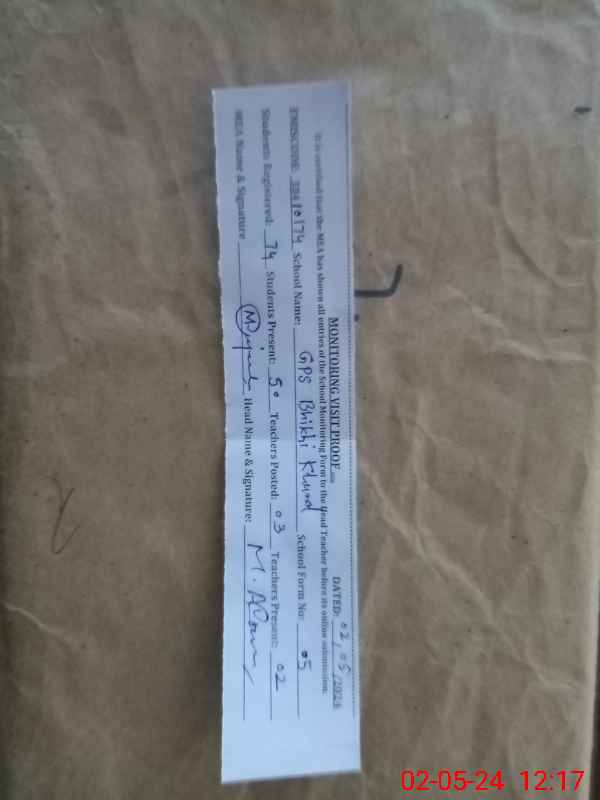 MONITORING VISIT PROOF DATED: 02/05/2024
It is certified that the MEA has shown all entries of the School Monitoring Form to the Head Teacher before its online submission.
EMISCODE: 38410174 School Name: GPS Bhikhi Khurd School Form No: 05
Students Registered: 74 Students Present: 50 Teachers Posted: 03 Teachers Present: 02
MEA Name & Signature Head Name & Signature: M.
02-05-24 12:17